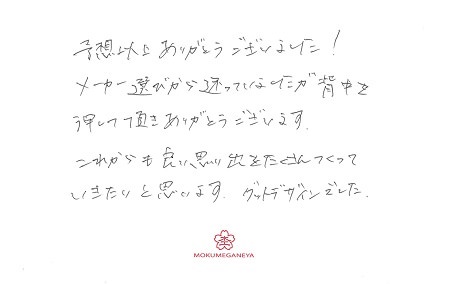 予想以上ありがとうございました！
メーカー選びから迷っていましたが背中を
押して頂きありがとうございます。
これからも良い思い出をたくさんつくって
いきたいと思います。グットデザインでした。
MOKUMEGANEYA